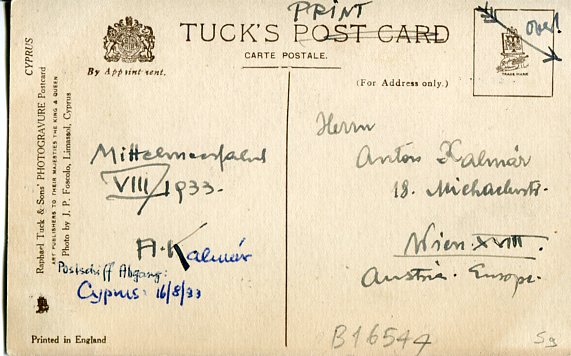 PRINT
TUCK'S POST CARD
CARTE POSTALE.
By Appointment.
(For Address only.)
over!
TRADE MARK
CYPRUS
Raphael Tuck & Sons' PHOTOGRAVURE Postcard
ART PUBLISHERS TO THEIR MAJESTIES THE KING & QUEEN
Photo by J. P. Foscolo, Limassol, Cyprus
Mittelmeerfahrt
VIII 1933.
A. Kalmár
Postschiff Abgang:
Cyprus 16/8/33
Printed in England
Herrn
Anton Kalmár
18. Michaelerstr.
Wien XVIII.
Austria. Europe.
B16544